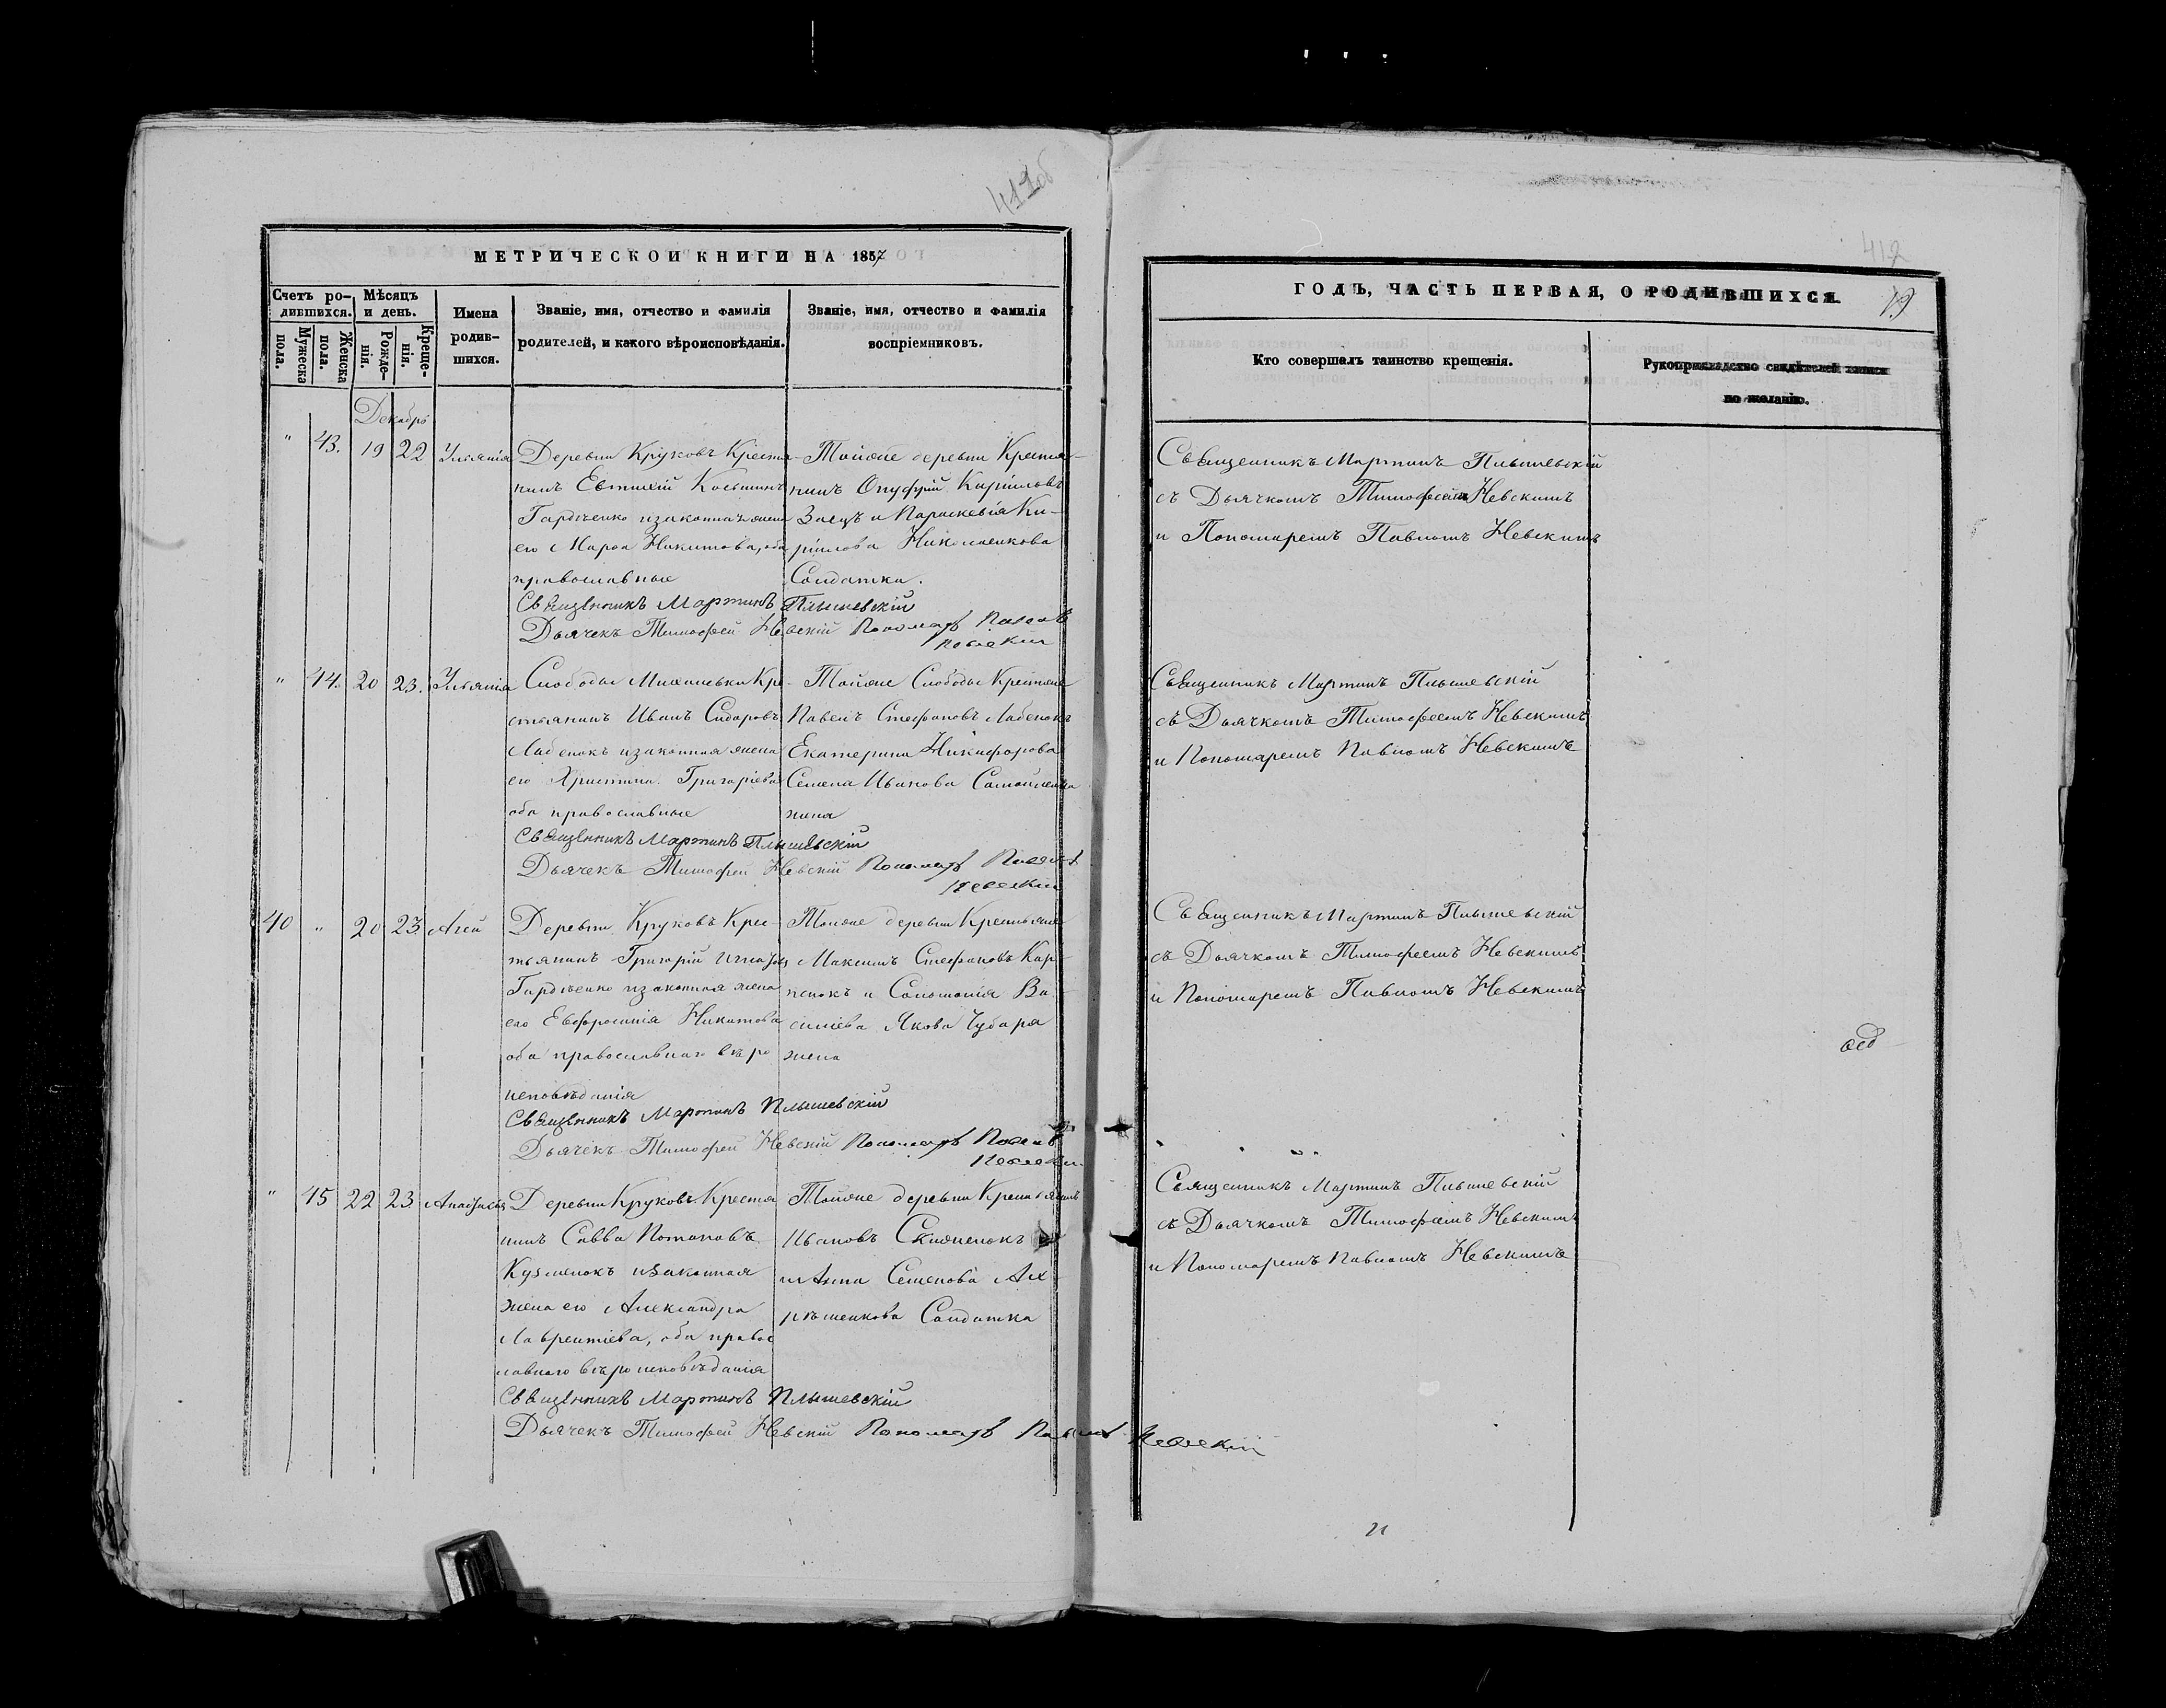 411об
МЕТРИЧЕСКОИ КНИГИ НА 1857
Счетъ ро-
дившихся.
Мѣсяцъ
и день.
Мужеска
пола.
Женска
пола.
Рожде-
нія.
Креще-
нія.
Имена
родив-
шихся.
Званіе, имя, отчество и фамилія
родителей, и какого вѣроисповѣданія.
Званіе, имя, отчество и фамилія
воспріемниковъ.
Декабрь
" 43. 19 22 Ульянія
Деревни Круковъ Крестья-
нинъ Евтихій Косьминъ
Гардіенко изаконная жена
его Марѳа Никитова, оба
православные
Тойже деревни Крестья-
нинъ Онуфрій Кариловъ
Заецъ и Параскевія Ки-
рилова
Солдатка.
Священникъ Мартинъ Плышевскій
Дьячекъ Тимофей Невскій Пономарь Павелъ
Невскій
" 44. 20 23. Ульянія
Слободы Кре-
стьянинъ Иванъ Сидоровъ
Лабенокъ изаконная жена
его Христина Григоріева
оба православные
Тойже Слободы Крестьяне
Павелъ Стефановъ Лабенокъ
Екатерина Никифорова
Семена Иванова
жена
Священникъ Мартинъ Плышевскій
Дьячекъ Тимофей Невскій Пономарь Павелъ
Невскій
40 " 20 23. Агей
Деревни Круковъ Крес-
тьянинъ Григорій
Гардіенко изаконная жена
его Евфросинія Никитова
оба православнаго вѣро
исповѣданія
Тойже деревни Крестьяне
Максимъ Стефановъ Кар-
пенокъ и Соломонія Ва-
силіева Якова Чубаря
жена
Священникъ Мартинъ Плышевскій
Дьячекъ Тимофей Невскій Пономарь Павелъ
Невскій
" 45 22 23. Анастасія
Деревни Круковъ Крестья
нинъ Савва Потаповъ
Кузменокъ изаконная
жена его Александра
Лаврентіева, оба правос
лавнаго вѣроисповѣданія
Тойже деревни Крестьянинъ
Ивановъ
и Анна Семенова
Солдатка
Священникъ Мартинъ Плышевскій
Дьячекъ Тимофей Невскій Пономарь Павелъ Невскій
412
ГОДЪ, ЧАСТЬ ПЕРВАЯ, О РОДИВШИХСЯ.
19
Кто совершалъ таинство крещенія.
Рукоприкладство свидѣтелей записи
по желанію.
Священникъ Мартинъ Плышевскій
съ Дьячкомъ Тимофеемъ Невскимъ
и Пономаремъ Павломъ Невскимъ
Священникъ Мартинъ Плышевскій
съ Дьячкомъ Тимофеемъ Невскимъ
и Пономаремъ Павломъ Невскимъ
Священникъ Мартинъ Плышевскій
съ Дьячкомъ Тимофеемъ Невскимъ
и Пономаремъ Павломъ Невскимъ
Священникъ Мартинъ Плышевскій
съ Дьячкомъ Тимофеемъ Невскимъ
и Пономаремъ Павломъ Невскимъ